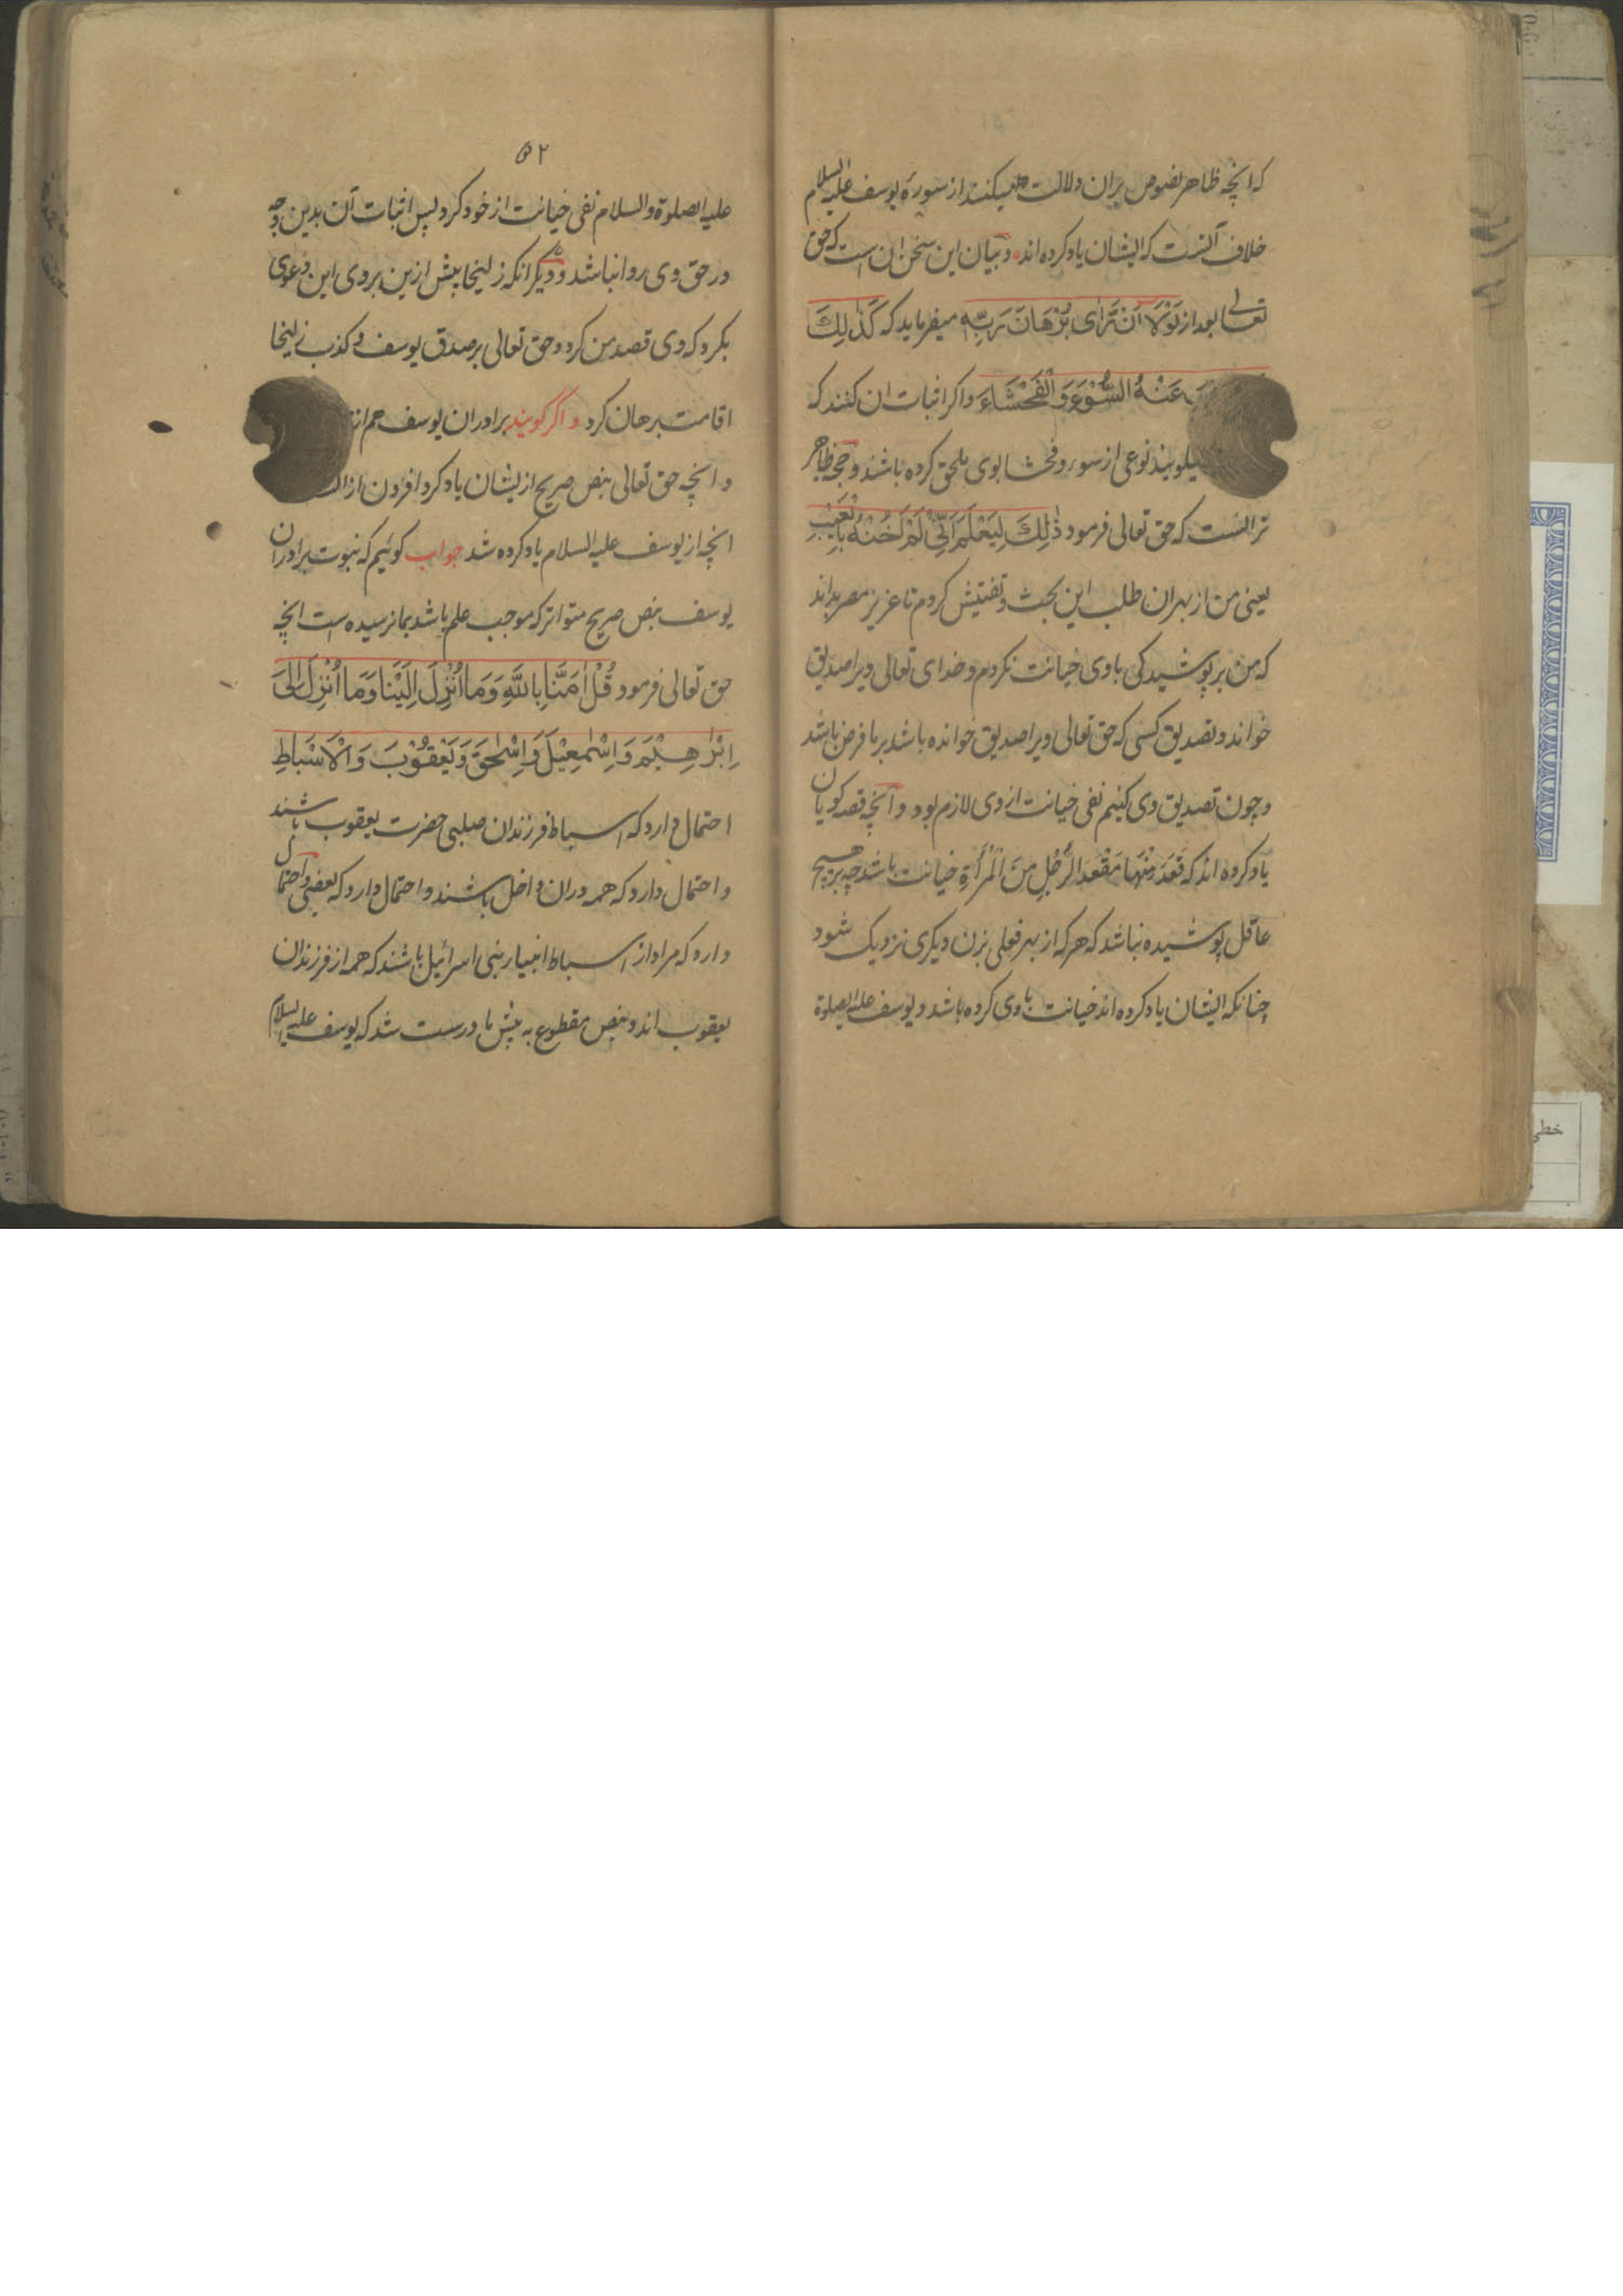 که انچه ظاهر نصوص بران دلالت میکند از سورهٔ یوسف علیه السلام
خلاف آنست که ایشان یاد کرده اند و بیان این سخن ان است که حق
تعالی بعد از لَوْلَا اَنْ تَرَای بُرْهَانَ رَبِّهٖ میفرماید که کَذٰلِكَ
عَنْهُ السُّوْءَ وَالْفَحْشَاءَ و اکر اثبات ان کنند که
میکویند نوعی از سوء و فحشا بوی ملحق کرده باشند و حجة ظاهر
تر انست که حق تعالی فرمود ذٰلِكَ لِيَعْلَمَ اَنِّيْ لَمْ اَخُنْهُ بِالْغَيْبِ
یعنی من از بهر ان طلب این بحث و تفتیش کردم تا عزیز مصر بداند
که من بر پوشیدکی با وی خیانت نکردم و خدای تعالی ویرا صدیق
خواند و تصدیق کسی که حق تعالی ویرا صدیق خوانده باشد بر ما فرض باشد
و چون تصدیق وی کنیم نفی خیانت از وی لازم بود و آنچه قصه کویان
یاد کرده اند که قَعَدَ مِنْهَا مَقْعَدَ الرَّجُلِ مِنَ الْمَرْأَةِ خیانت باشد چه بر هیچ
عاقل پوشیده نباشد که هر که از بهر فعلی بزن دیکری نزدیک شود
چنانکه ایشان یاد کرده اند خیانت با وی کرده باشد و یوسف علیه الصلوة
۵۲
علیه الصلوة والسلام نفی خیانت از خود کرد پس اثبات آن بدین وجه
در حق وی روا نباشد و دیکر انکه زلیخا پیش ازین بر وی این دعوی
بکرد که وی قصد من کرد و حق تعالی بر صدق یوسف و کذب زلیخا
اقامت برهان کرد و اگر کویند برادران یوسف هم از
و انچه حق تعالی بنص صریح ازیشان یاد کرد افزون از
انچه از یوسف علیه السلام یاد کرده شد جواب کوئیم که نبوت برادران
یوسف بنص صریح متواتر که موجب علم باشد بما نرسیده است انچه
حق تعالی فرمود قُلْ اٰمَنَّا بِاللّٰهِ وَمَا اُنْزِلَ اِلَيْنَا وَمَا اُنْزِلَ اِلٰىَ
اِبْرٰهِيْمَ وَاِسْمٰعِيْلَ وَاِسْحٰقَ وَيَعْقُوْبَ وَالْاَسْبَاطِ
احتمال دارد که اسباط فرزندان صلبی حضرت یعقوب باشند
و احتمال دارد که همه دران داخل باشند و احتمال دارد که بعضی و احتمال
دارد که مراد از اسباط انبیاء بنی اسرائیل باشند که همه از فرزندان
یعقوب اند و بنص مقطوع به پیش ما درست شد که یوسف علیه السلام
خطی